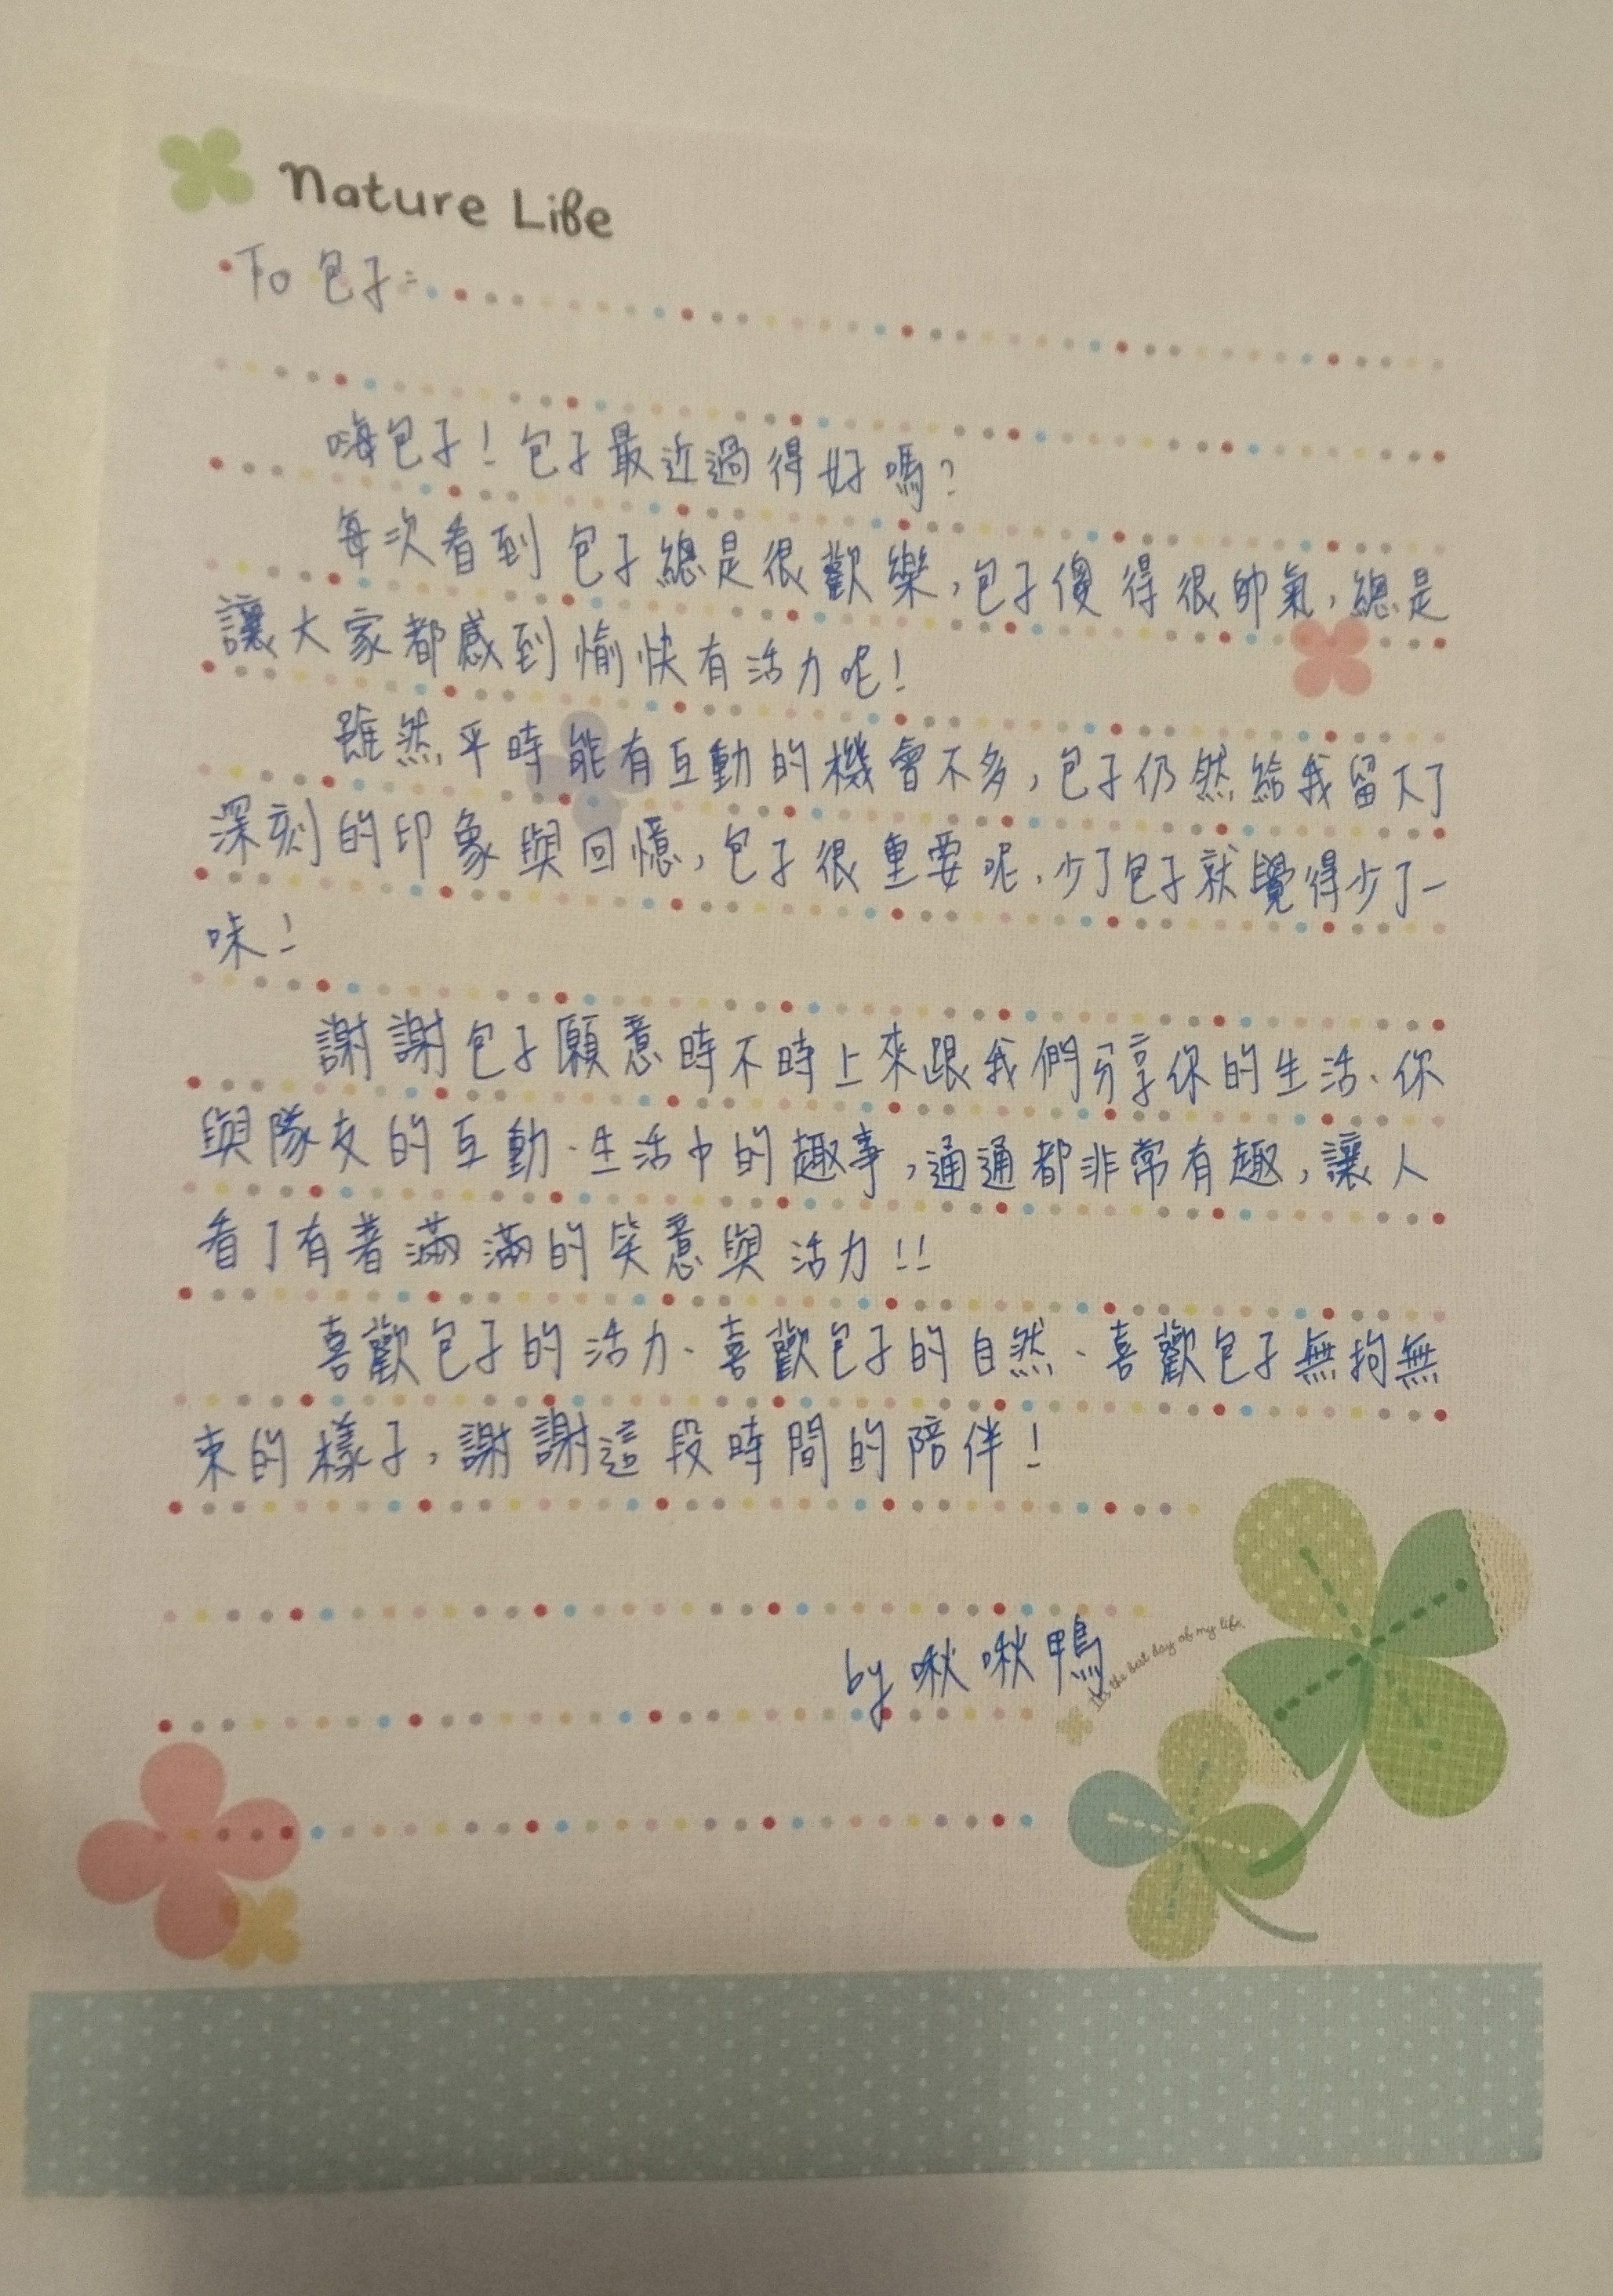 Nature Life
To 包子:
嗨包子!包子最近過得好嗎?
每次看到包子總是很歡樂,包子傻得很帥氣,總是
讓大家都感到愉快有活力呢!
雖然平時能有互動的機會不多,包子仍然給我留下了
深刻的印象與回憶,包子很重要呢、少了包子就覺得少了一
味!
謝謝包子願意時不時上來跟我們分享你的生活、你
與隊友的互動、生活中的趣事,通通都非常有趣,讓人
看了有著滿滿的笑意與活力!!
喜歡包子的活力、喜歡包子的自然、喜歡包子無拘無
束的樣子,謝謝這段時間的陪伴!
by 啾啾鴨
It's the best day of my life.